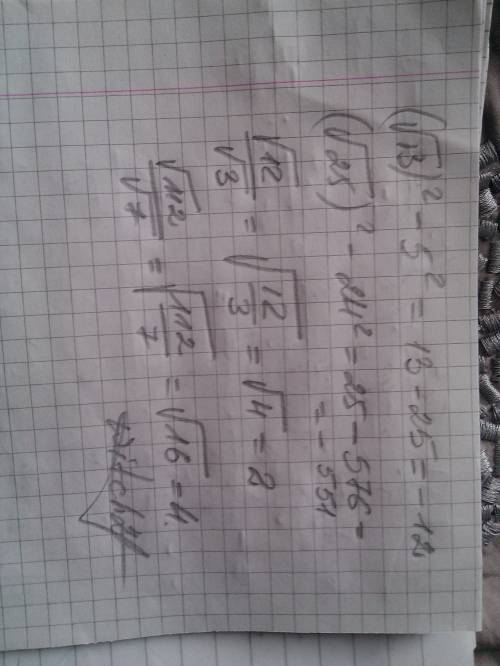 (√13)² - 5² = 13 - 25 = - 12
(√25)² - 24² = 25 - 576 =
= - 551
√12/√3 = √12/3 = √4 = 2
√112/√7 = √112/7 = √16 = 4.